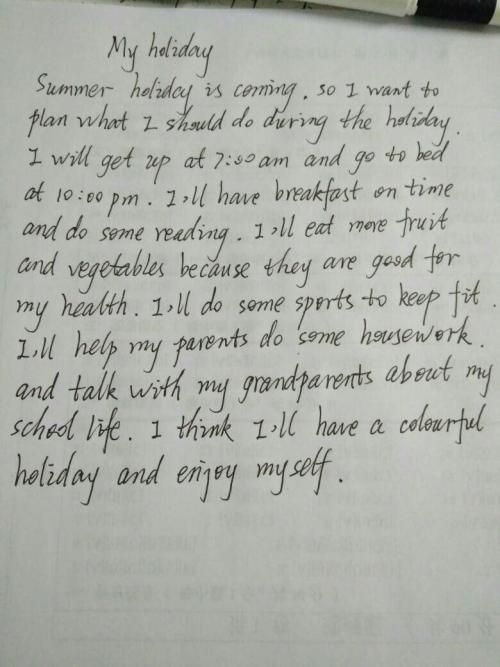 My holiday
Summer holiday is coming. so I want to
plan what I should do during the holiday.
I will get up at 7:00 am and go to bed
at 10:00 pm. I,ll have breakfast on time
and do some reading. I,ll eat more fruit
and vegetables because they are good for
my health. I,ll do some sports to keep fit.
I,ll help my parents do some housework.
and talk with my grandparents about my
school life. I think I,ll have a colourful
holiday and enjoy myself.